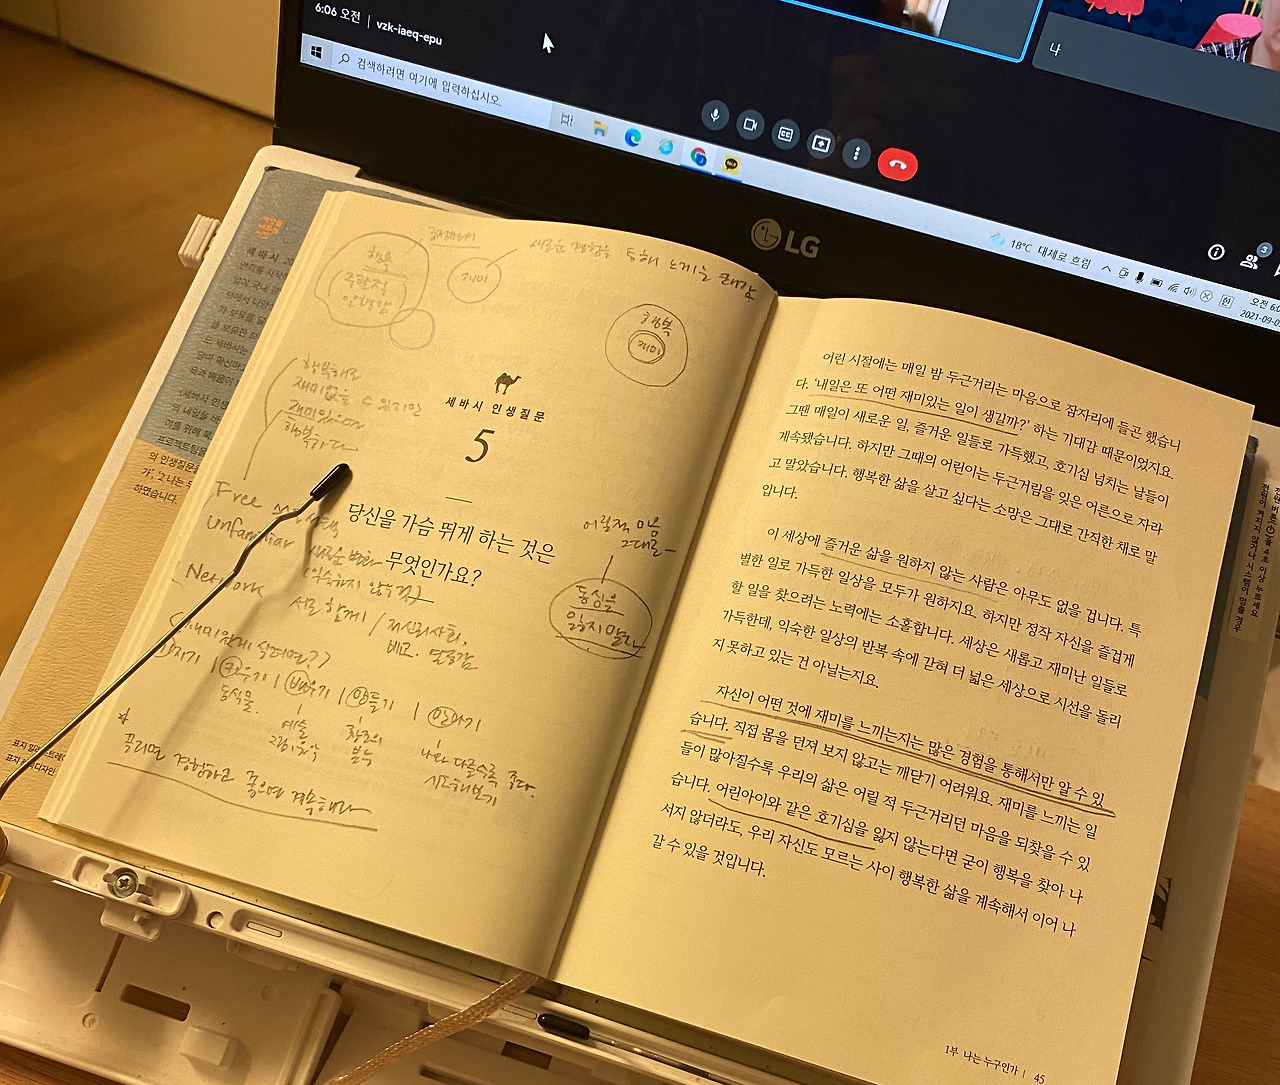 6:06 오전 | vzk-iaeq-epu
나
검색하려면 여기에 입력하십시오.
LG
18°C 대체로 흐림
3
한
오전 6:0
2021-09-0
행복
주관적
안녕감
재미
새로운 경험을 통해 느끼는 쾌감
행복
재미
행복해도
재미없을 수 있지만
재미있으면
행복하다
세바시 인생질문
5
당신을 가슴 뛰게 하는 것은
무엇인가요?
Free
unfamiliar
새로운 변화
(익숙하지 않은 것)
Network
서로 함께 / 자신의 사회,
비교. 열등감
어릴적 마음
그대로
동심을
잃지 말라
재미있게 살려면??
키우기 | 배우기 | 만들기 |
동식물.
예술
나와 다를수록 좋다.
시도해보기
끌리면 경험하고 좋으면 계속해라
어린 시절에는 매일 밤 두근거리는 마음으로 잠자리에 들곤 했습니
다. '내일은 또 어떤 재미있는 일이 생길까?' 하는 기대감 때문이었지요.
그땐 매일이 새로운 일, 즐거운 일들로 가득했고, 호기심 넘치는 날들이
계속됐습니다. 하지만 그때의 어린이는 두근거림을 잊은 어른으로 자라
고 말았습니다. 행복한 삶을 살고 싶다는 소망은 그대로 간직한 채로 말
입니다.
이 세상에 즐거운 삶을 원하지 않는 사람은 아무도 없을 겁니다. 특
별한 일로 가득한 일상을 모두가 원하지요. 하지만 정작 자신을 즐겁게
할 일을 찾으려는 노력에는 소홀합니다. 세상은 새롭고 재미난 일들로
가득한데, 익숙한 일상의 반복 속에 갇혀 더 넓은 세상으로 시선을 돌리
지 못하고 있는 건 아닐는지요.
자신이 어떤 것에 재미를 느끼는지는 많은 경험을 통해서만 알 수 있
습니다. 직접 몸을 던져 보지 않고는 깨닫기 어려워요. 재미를 느끼는 일
들이 많아질수록 우리의 삶은 어릴 적 두근거리던 마음을 되찾을 수 있
습니다. 어린아이와 같은 호기심을 잃지 않는다면 굳이 행복을 찾아 나
서지 않더라도, 우리 자신도 모르는 사이 행복한 삶을 계속해서 이어 나
갈 수 있을 것입니다.
1부 나는 누구인가 | 45